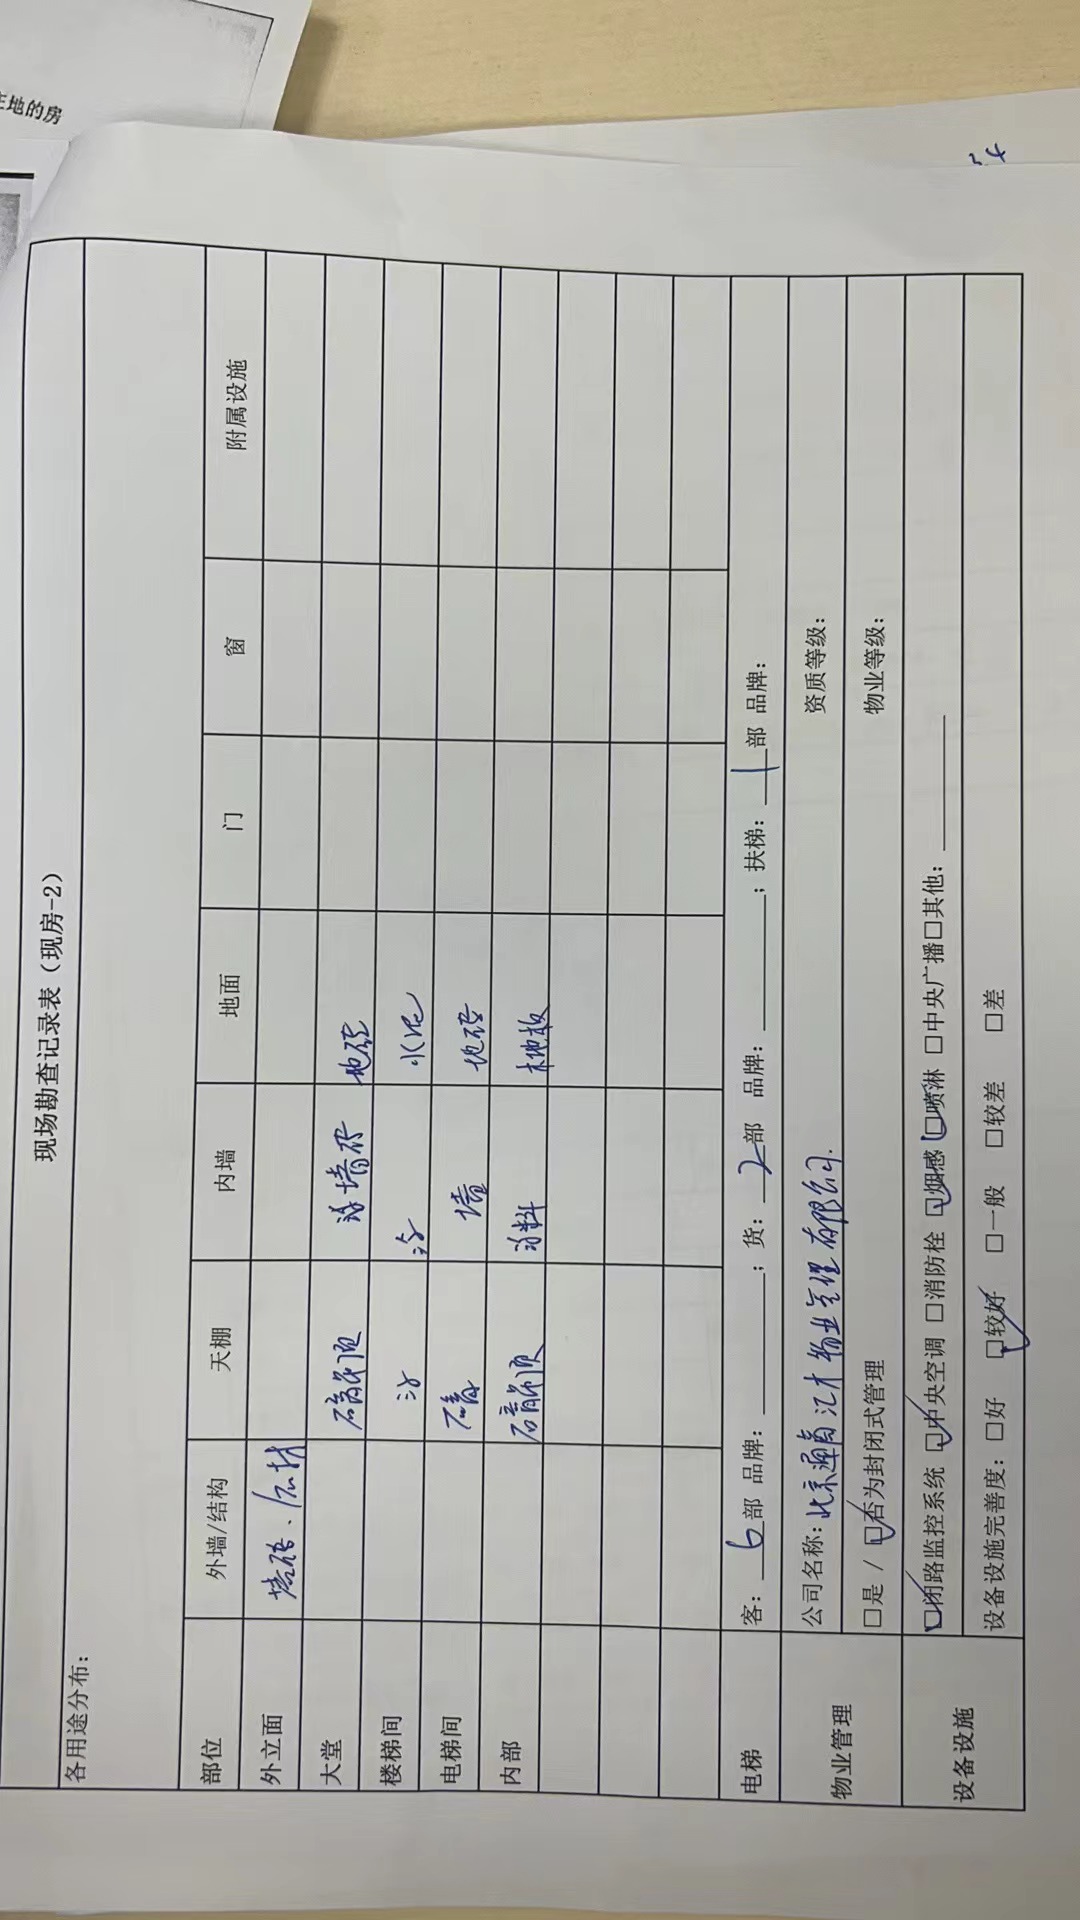 现场勘查记录表（现房-2）
各用途分布：
部位 外墙/结构 天棚 内墙 地面 门 窗 附属设施
外立面 墙砖、石材
大堂 石膏吊顶 墙砖 地砖
楼梯间 水泥
电梯间 石膏 墙 地砖
内部 石膏吊顶 涂料 木地板
电梯 客：6部 品牌： ；货：2部 品牌： ；扶梯：1部 品牌：
物业管理 公司名称：北京 汇才物业管理有限公司. 资质等级：
□是 / ☑否为封闭式管理 物业等级：
设备设施 ☑闭路监控系统 ☑中央空调 □消防栓 ☑烟感 ☑喷淋 □中央广播□其他：
设备设施完善度：□好 ☑较好 □一般 □较差 □差
地的房